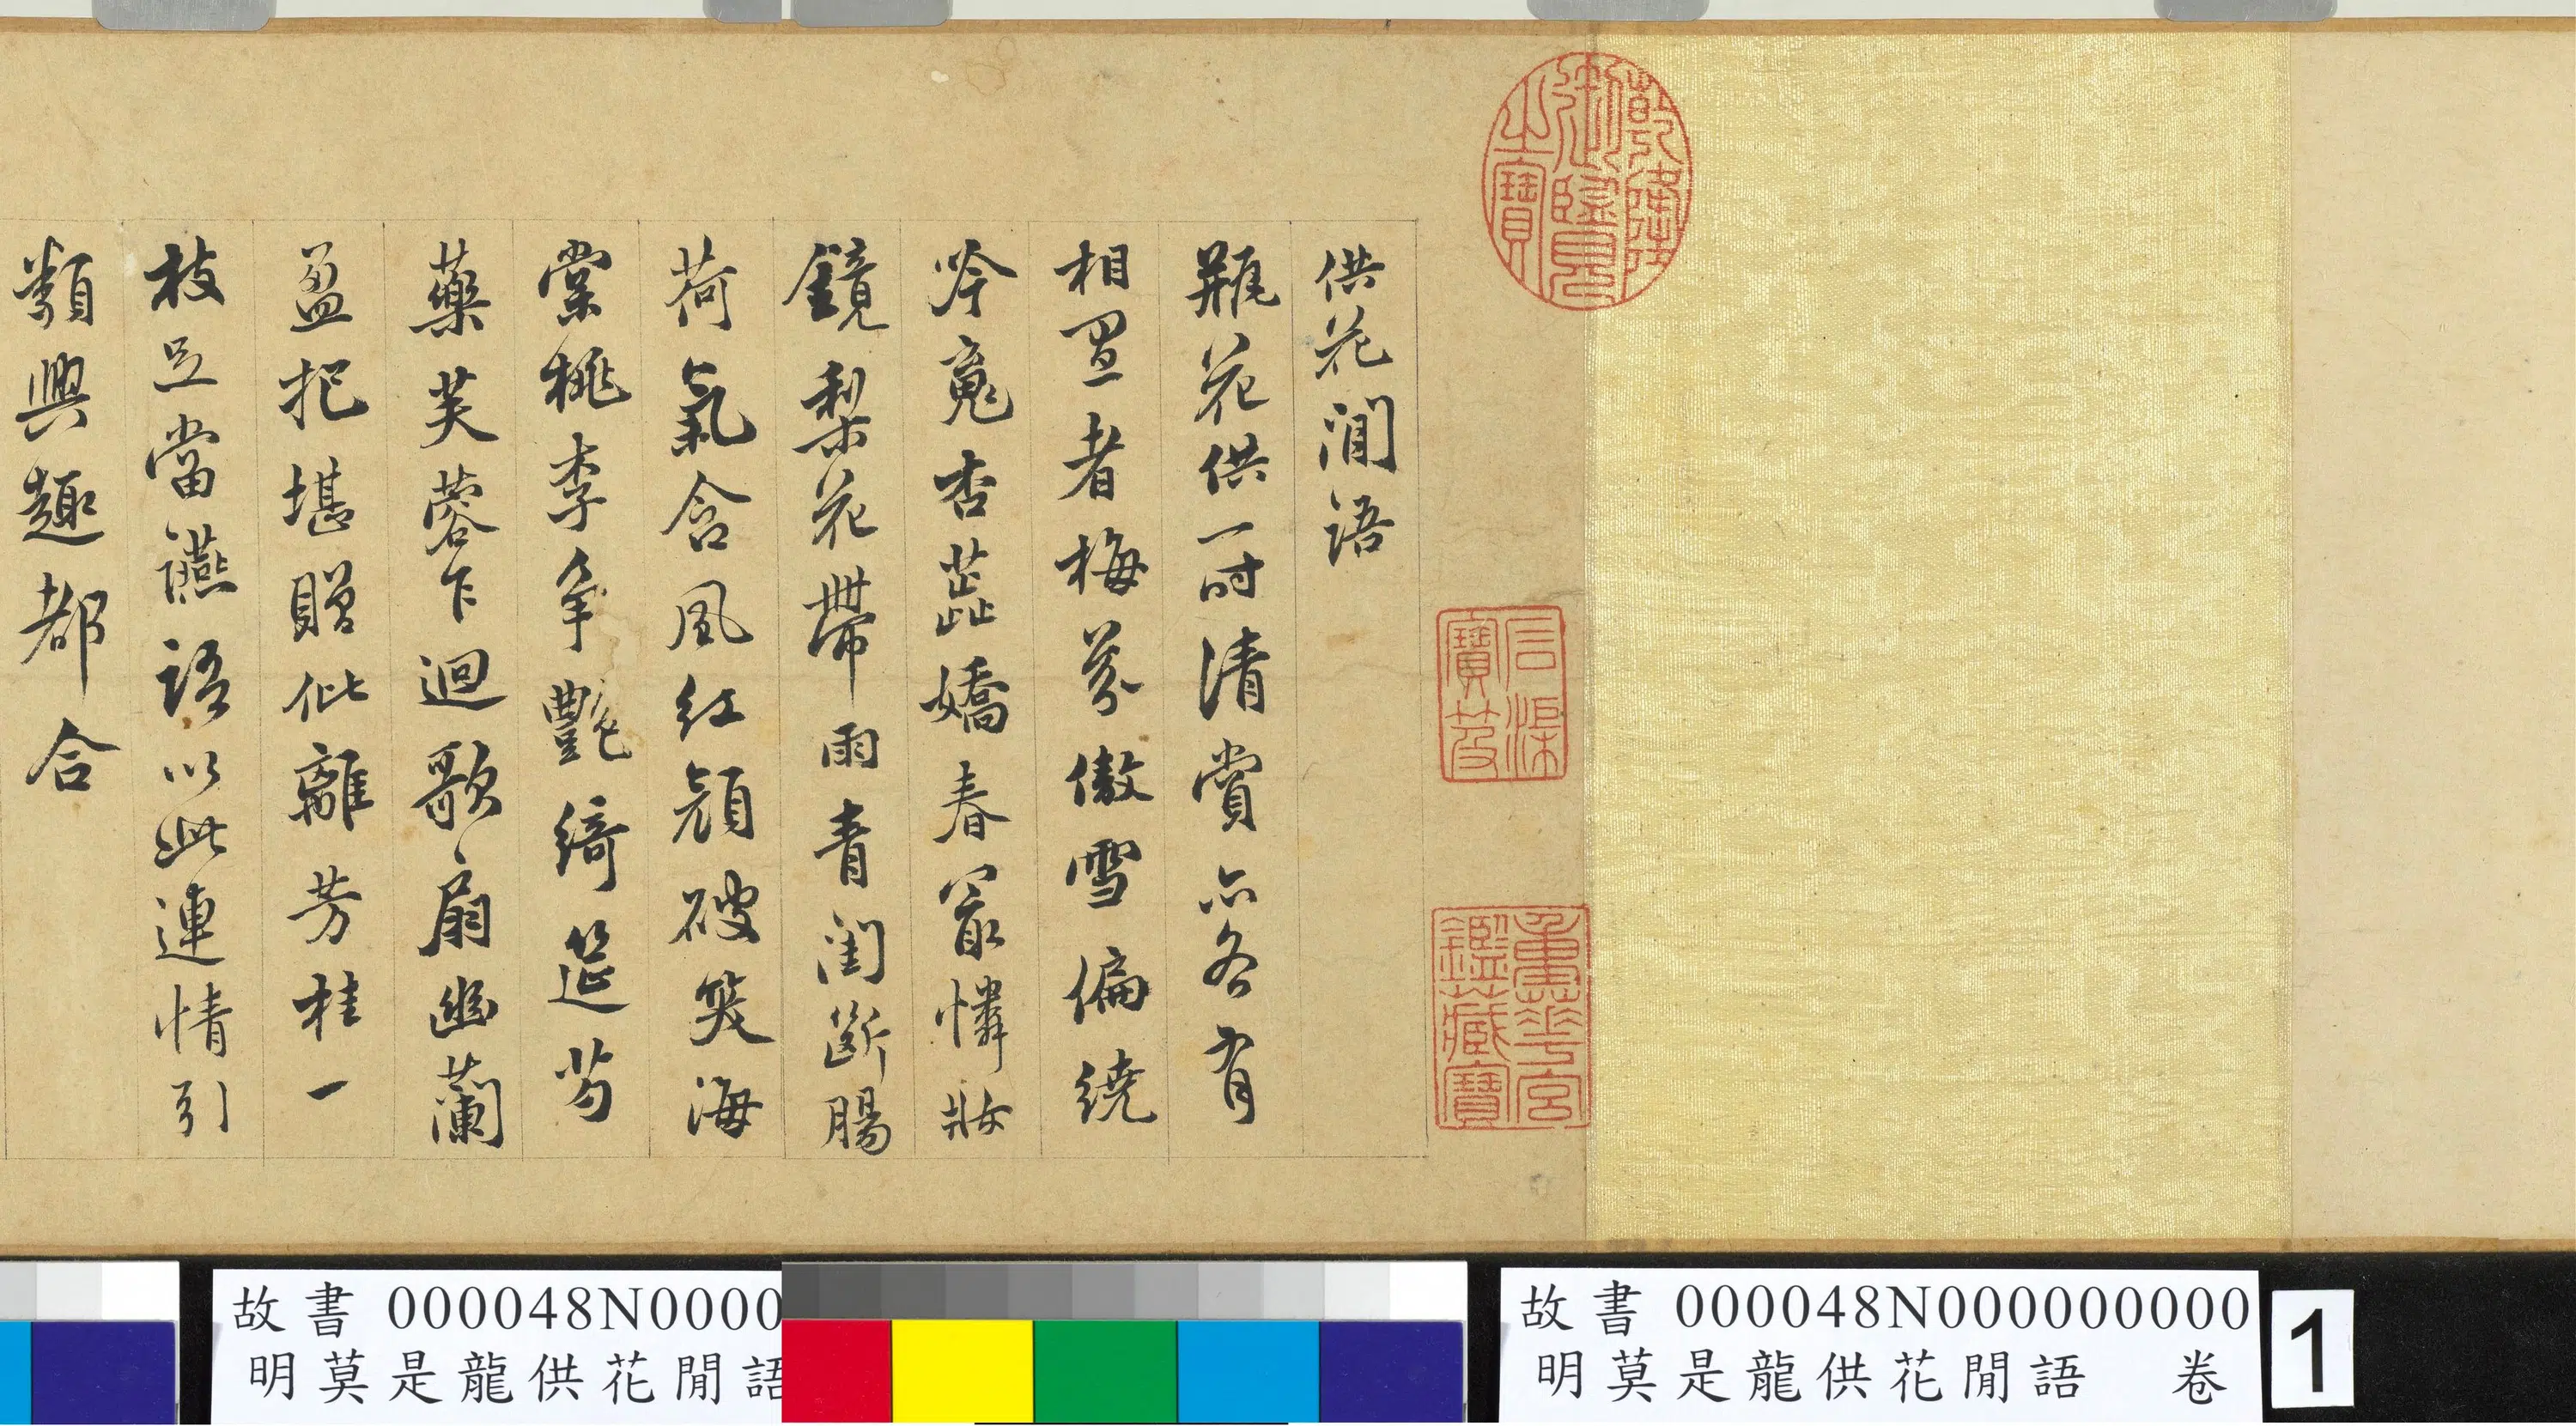 供花閒語
瓶花供一時清賞亦各有
相宜者梅芬傲雪偏繞
吟魂杏蕊嬌春最憐妝
鏡梨花帶雨青閨斷腸
荷氣含風紅顏破笑海
棠桃李爭艷綺筵芍
藥芙蓉乍迴歌扇幽蘭
盈把堪贈仳離芳桂一
枝足當讌語以此連情引
類興趣都合
乾隆御覽之寶
石渠寶笈
重華宮鑑藏寶
故書 000048N0000
明莫是龍供花閒語
故書 000048N000000000
明莫是龍供花閒語 卷
1